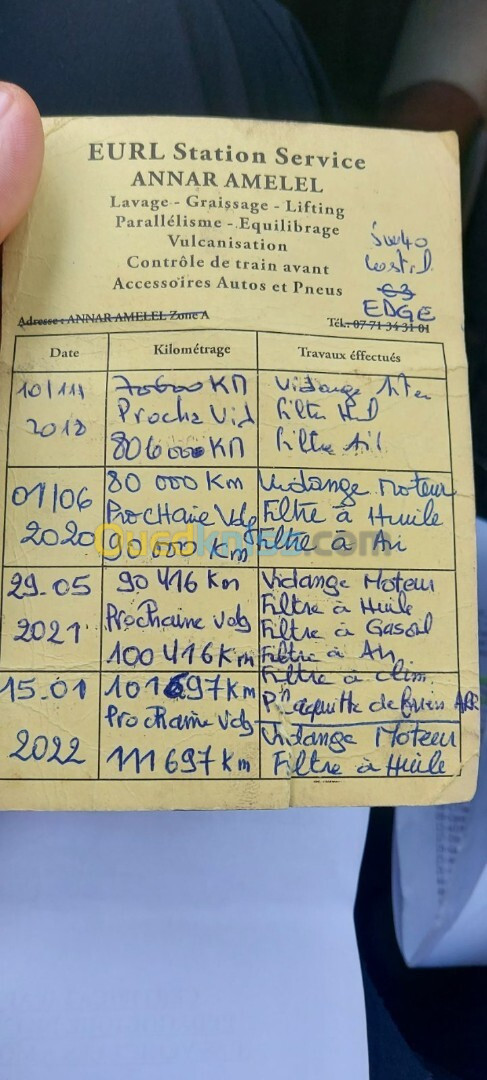 EURL Station Service
ANNAR AMELEL
Lavage - Graissage - Lifting
Parallélisme - Equilibrage
Vulcanisation
Contrôle de train avant
Accessoires Autos et Pneus
5w40
C3
EDGE
Adresse : ANNAR AMELEL Zone A
Tél.: 07 71 34 31 01
Date Kilométrage Travaux éffectués
10/11/ 70600 KM Vidange
2018 Proche Vid Filter
80600 KM Filtre
01/06 80 000 Km Vidange Moteur
Prochaine Vdg Filtre à Huile
2020 90 000 Km Filtre à
Ouedkniss.com
29.05 90 416 Km Vidange Moteur
Prochaine Vdg Filtre à Huile
2021 Filtre à Gasoil
100 416 Km Filtre à
Filtre à clim.
15.01 101697 Km Plaquitte de frein ARR
Prochaine Vdg Vidange Moteur
2022 111 697 Km Filtre à Huile